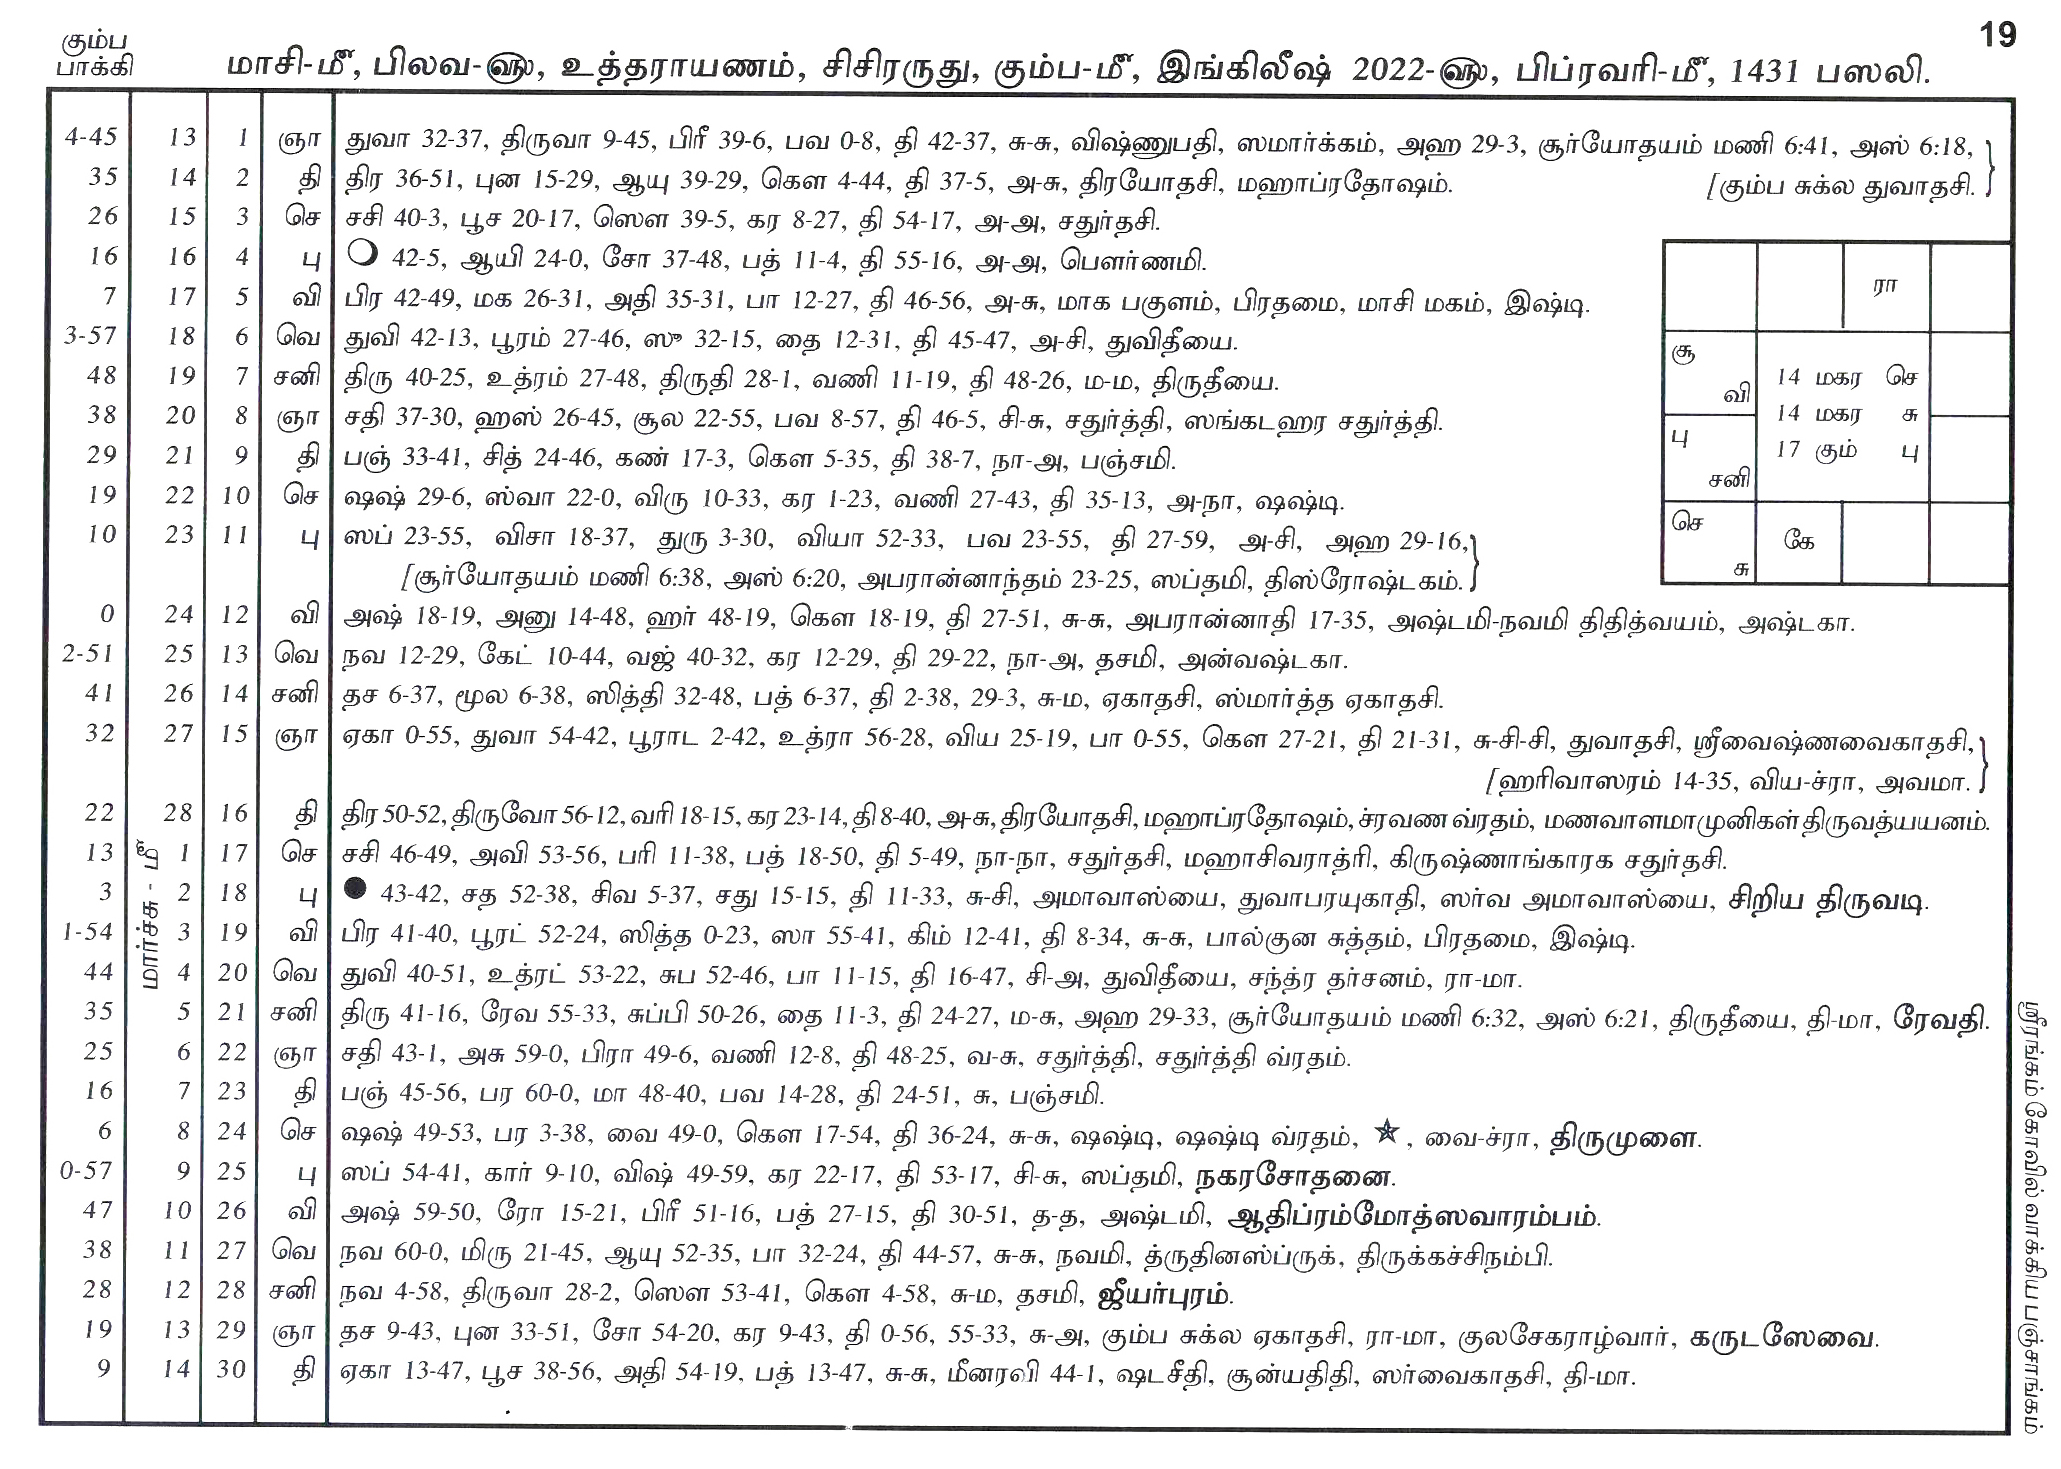 19
கும்ப
பாக்கி
மாசி-௴, பிலவ-௵, உத்தராயணம், சிசிரருது, கும்ப-௴, இங்கிலீஷ் 2022-௵, பிப்ரவரி-௴, 1431 பஸலி.
4-45 13 1 ஞா துவா 32-37, திருவா 9-45, பிரீ 39-6, பவ 0-8, தி 42-37, சு-சு, விஷ்ணுபதி, ஸமார்க்கம், அஹ 29-3, சூர்யோதயம் மணி 6:41, அஸ் 6:18,
35 14 2 தி திர 36-51, புன 15-29, ஆயு 39-29, கௌ 4-44, தி 37-5, அ-சு, திரயோதசி, மஹாப்ரதோஷம். [கும்ப சுக்ல துவாதசி.
26 15 3 செ சசி 40-3, பூச 20-17, ஸௌ 39-5, கர 8-27, தி 54-17, அ-அ, சதுர்தசி.
16 16 4 பு 42-5, ஆயி 24-0, சோ 37-48, பத் 11-4, தி 55-16, அ-அ, பௌர்ணமி.
7 17 5 வி பிர 42-49, மக 26-31, அதி 35-31, பா 12-27, தி 46-56, அ-சு, மாக பகுளம், பிரதமை, மாசி மகம், இஷ்டி.
3-57 18 6 வெ துவி 42-13, பூரம் 27-46, ஸு 32-15, தை 12-31, தி 45-47, அ-சி, துவிதீயை.
48 19 7 சனி திரு 40-25, உத்ரம் 27-48, திருதி 28-1, வணி 11-19, தி 48-26, ம-ம, திருதீயை.
38 20 8 ஞா சதி 37-30, ஹஸ் 26-45, சூல 22-55, பவ 8-57, தி 46-5, சி-சு, சதுர்த்தி, ஸங்கடஹர சதுர்த்தி.
29 21 9 தி பஞ் 33-41, சித் 24-46, கண் 17-3, கௌ 5-35, தி 38-7, நா-அ, பஞ்சமி.
19 22 10 செ ஷஷ் 29-6, ஸ்வா 22-0, விரு 10-33, கர 1-23, வணி 27-43, தி 35-13, அ-நா, ஷஷ்டி.
10 23 11 பு ஸப் 23-55, விசா 18-37, துரு 3-30, வியா 52-33, பவ 23-55, தி 27-59, அ-சி, அஹ 29-16,
[சூர்யோதயம் மணி 6:38, அஸ் 6:20, அபரான்னாந்தம் 23-25, ஸப்தமி, திஸ்ரோஷ்டகம்.
0 24 12 வி அஷ் 18-19, அனு 14-48, ஹர் 48-19, கௌ 18-19, தி 27-51, சு-சு, அபரான்னாதி 17-35, அஷ்டமி-நவமி திதித்வயம், அஷ்டகா.
2-51 25 13 வெ நவ 12-29, கேட் 10-44, வஜ் 40-32, கர 12-29, தி 29-22, நா-அ, தசமி, அன்வஷ்டகா.
41 26 14 சனி தச 6-37, மூல 6-38, ஸித்தி 32-48, பத் 6-37, தி 2-38, 29-3, சு-ம, ஏகாதசி, ஸ்மார்த்த ஏகாதசி.
32 27 15 ஞா ஏகா 0-55, துவா 54-42, பூராட 2-42, உத்ரா 56-28, விய 25-19, பா 0-55, கௌ 27-21, தி 21-31, சு-சி-சி, துவாதசி, ஸ்ரீவைஷ்ணவைகாதசி,
[ஹரிவாஸரம் 14-35, விய-ச்ரா, அவமா.
22 28 16 தி திர 50-52, திருவோ 56-12, வரி 18-15, கர 23-14, தி 8-40, அ-சு, திரயோதசி, மஹாப்ரதோஷம், ச்ரவண வ்ரதம், மணவாளமாமுனிகள் திருவத்யயனம்.
13 1 17 செ சசி 46-49, அவி 53-56, பரி 11-38, பத் 18-50, தி 5-49, நா-நா, சதுர்தசி, மஹாசிவராத்ரி, கிருஷ்ணாங்காரக சதுர்தசி.
3 2 18 பு 43-42, சத 52-38, சிவ 5-37, சது 15-15, தி 11-33, சு-சி, அமாவாஸ்யை, துவாபரயுகாதி, ஸர்வ அமாவாஸ்யை, சிறிய திருவடி.
1-54 3 19 வி பிர 41-40, பூரட் 52-24, ஸித்த 0-23, ஸா 55-41, கிம் 12-41, தி 8-34, சு-சு, பால்குன சுத்தம், பிரதமை, இஷ்டி.
44 4 20 வெ துவி 40-51, உத்ரட் 53-22, சுப 52-46, பா 11-15, தி 16-47, சி-அ, துவிதீயை, சந்த்ர தர்சனம், ரா-மா.
35 5 21 சனி திரு 41-16, ரேவ 55-33, சுப்பி 50-26, தை 11-3, தி 24-27, ம-சு, அஹ 29-33, சூர்யோதயம் மணி 6:32, அஸ் 6:21, திருதீயை, தி-மா, ரேவதி.
25 6 22 ஞா சதி 43-1, அசு 59-0, பிரா 49-6, வணி 12-8, தி 48-25, வ-சு, சதுர்த்தி, சதுர்த்தி வ்ரதம்.
16 7 23 தி பஞ் 45-56, பர 60-0, மா 48-40, பவ 14-28, தி 24-51, சு, பஞ்சமி.
6 8 24 செ ஷஷ் 49-53, பர 3-38, வை 49-0, கௌ 17-54, தி 36-24, சு-சு, ஷஷ்டி, ஷஷ்டி வ்ரதம், ☆, வை-ச்ரா, திருமுளை.
0-57 9 25 பு ஸப் 54-41, கார் 9-10, விஷ் 49-59, கர 22-17, தி 53-17, சி-சு, ஸப்தமி, நகரசோதனை.
47 10 26 வி அஷ் 59-50, ரோ 15-21, பிரீ 51-16, பத் 27-15, தி 30-51, த-த, அஷ்டமி, ஆதிப்ரம்மோத்ஸவாரம்பம்.
38 11 27 வெ நவ 60-0, மிரு 21-45, ஆயு 52-35, பா 32-24, தி 44-57, சு-சு, நவமி, த்ருதினஸ்ப்ருக், திருக்கச்சிநம்பி.
28 12 28 சனி நவ 4-58, திருவா 28-2, ஸௌ 53-41, கௌ 4-58, சு-ம, தசமி, ஜீயர்புரம்.
19 13 29 ஞா தச 9-43, புன 33-51, சோ 54-20, கர 9-43, தி 0-56, 55-33, சு-அ, கும்ப சுக்ல ஏகாதசி, ரா-மா, குலசேகராழ்வார், கருடஸேவை.
9 14 30 தி ஏகா 13-47, பூச 38-56, அதி 54-19, பத் 13-47, சு-சு, மீனரவி 44-1, ஷடசீதி, சூன்யதிதி, ஸர்வைகாதசி, தி-மா.
மார்ச்சு - ௴
ரா
சூ
வி
14 மகர செ
14 மகர சு
17 கும் பு
பு
சனி
செ
சு
கே
ஸ்ரீரங்கம் கோவில் வாக்கிய பஞ்சாங்கம்